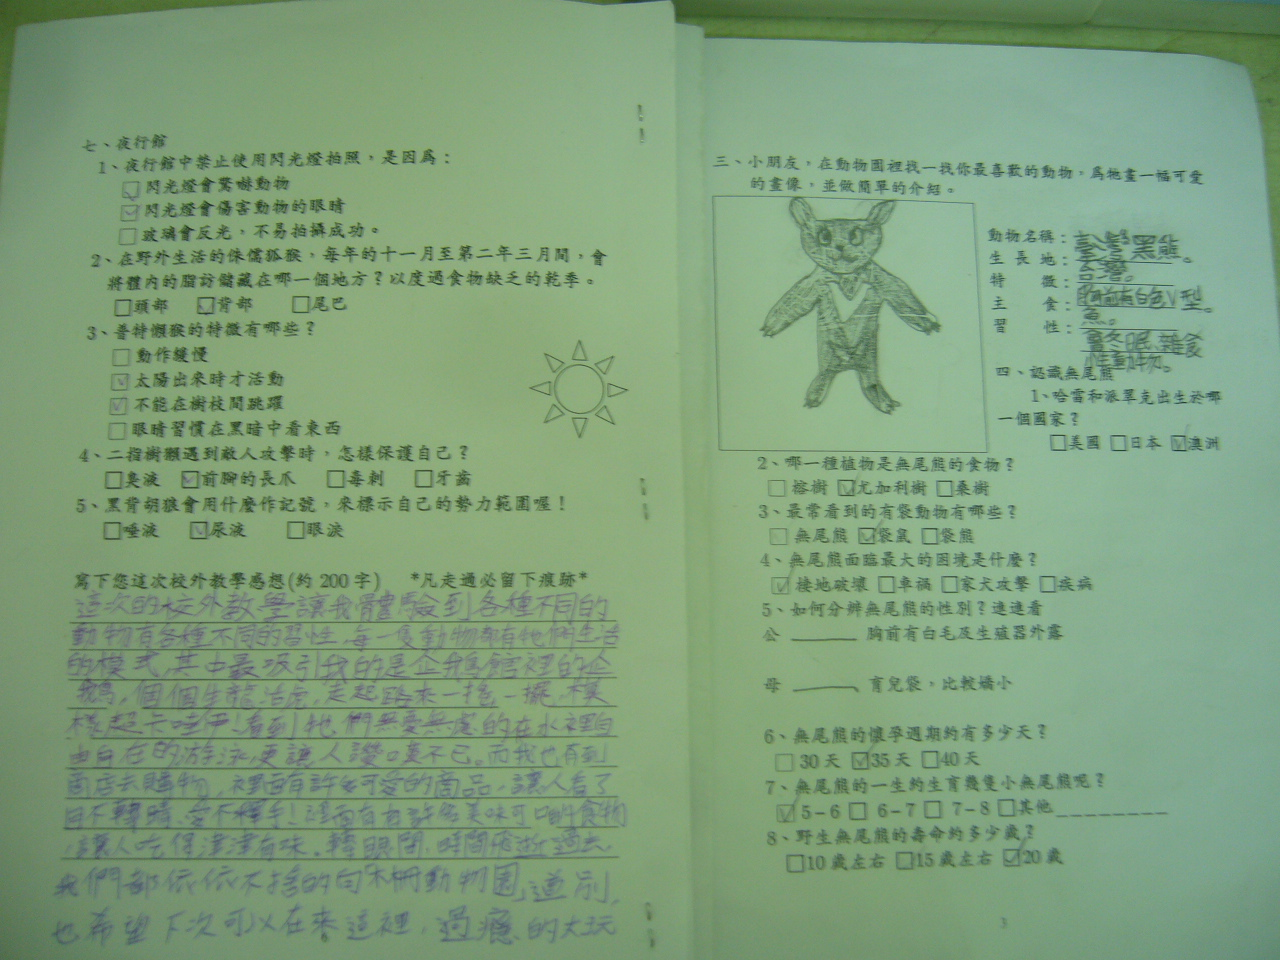 七、夜行館
1、夜行館中禁止使用閃光燈拍照，是因為：
閃光燈會驚嚇動物
閃光燈會傷害動物的眼睛
玻璃會反光，不易拍攝成功。
2、在野外生活的侏儒狐猴，每年的十一月至第二年三月間，會
將體內的脂肪儲藏在哪一個地方？以度過食物缺乏的乾季。
頭部 背部 尾巴
3、普特懶猴的特徵有哪些？
動作緩慢
太陽出來時才活動
不能在樹枝間跳躍
眼睛習慣在黑暗中看東西
4、二指樹獺遇到敵人攻擊時，怎樣保護自己？
臭液 前腳的長爪 毒刺 牙齒
5、黑背胡狼會用什麼作記號，來標示自己的勢力範圍喔！
唾液 尿液 眼淚
寫下您這次校外教學感想(約 200 字) *凡走過必留下痕跡*
這次的校外教學讓我體驗到各種不同的
動物有各種不同的習性，每一隻動物都有他們生活
的模式，其中最吸引我的是企鵝館裡的企
鵝，個個生龍活虎，走起路來一搖一擺，模
樣超卡哇伊！看到牠們無憂無慮的在水裡自
由自在的游泳，更讓人讚嘆不已。而我也有到
商店去購物，裡面有許多可愛的商品，讓人看了
目不轉睛，愛不釋手！裡面有有許多美味可口的食物
，讓人吃得津津有味。轉眼間，時間飛逝過去，
我們都依依不捨的向木柵動物園道別，
也希望下次可以在來這裡，過癮的大玩
三、小朋友，在動物園裡找一找你最喜歡的動物，為牠畫一幅可愛
的畫像，並做簡單的介紹。
動物名稱：臺灣黑熊。
生長地：台灣。
特徵：胸前有白色V型。
主食：魚。
習性：會冬眠、雜食
性動物。
四、認識無尾熊
1、哈雷和派翠克出生於哪
一個國家？
美國 日本 澳洲
2、哪一種植物是無尾熊的食物？
榕樹 尤加利樹 桑樹
3、最常看到的有袋動物有哪些？
無尾熊 袋鼠 袋熊
4、無尾熊面臨最大的困境是什麼？
接地破壞 車禍 家犬攻擊 疾病
5、如何分辨無尾熊的性別？連連看
公 胸前有白毛及生殖器外露
母 育兒袋，比較嬌小
6、無尾熊的懷孕週期約有多少天？
30天 35天 40天
7、無尾熊的一生約生育幾隻小無尾熊呢？
5-6 6-7 7-8 其他________
8、野生無尾熊的壽命約多少歲？
10歲左右 15歲左右 20歲
3